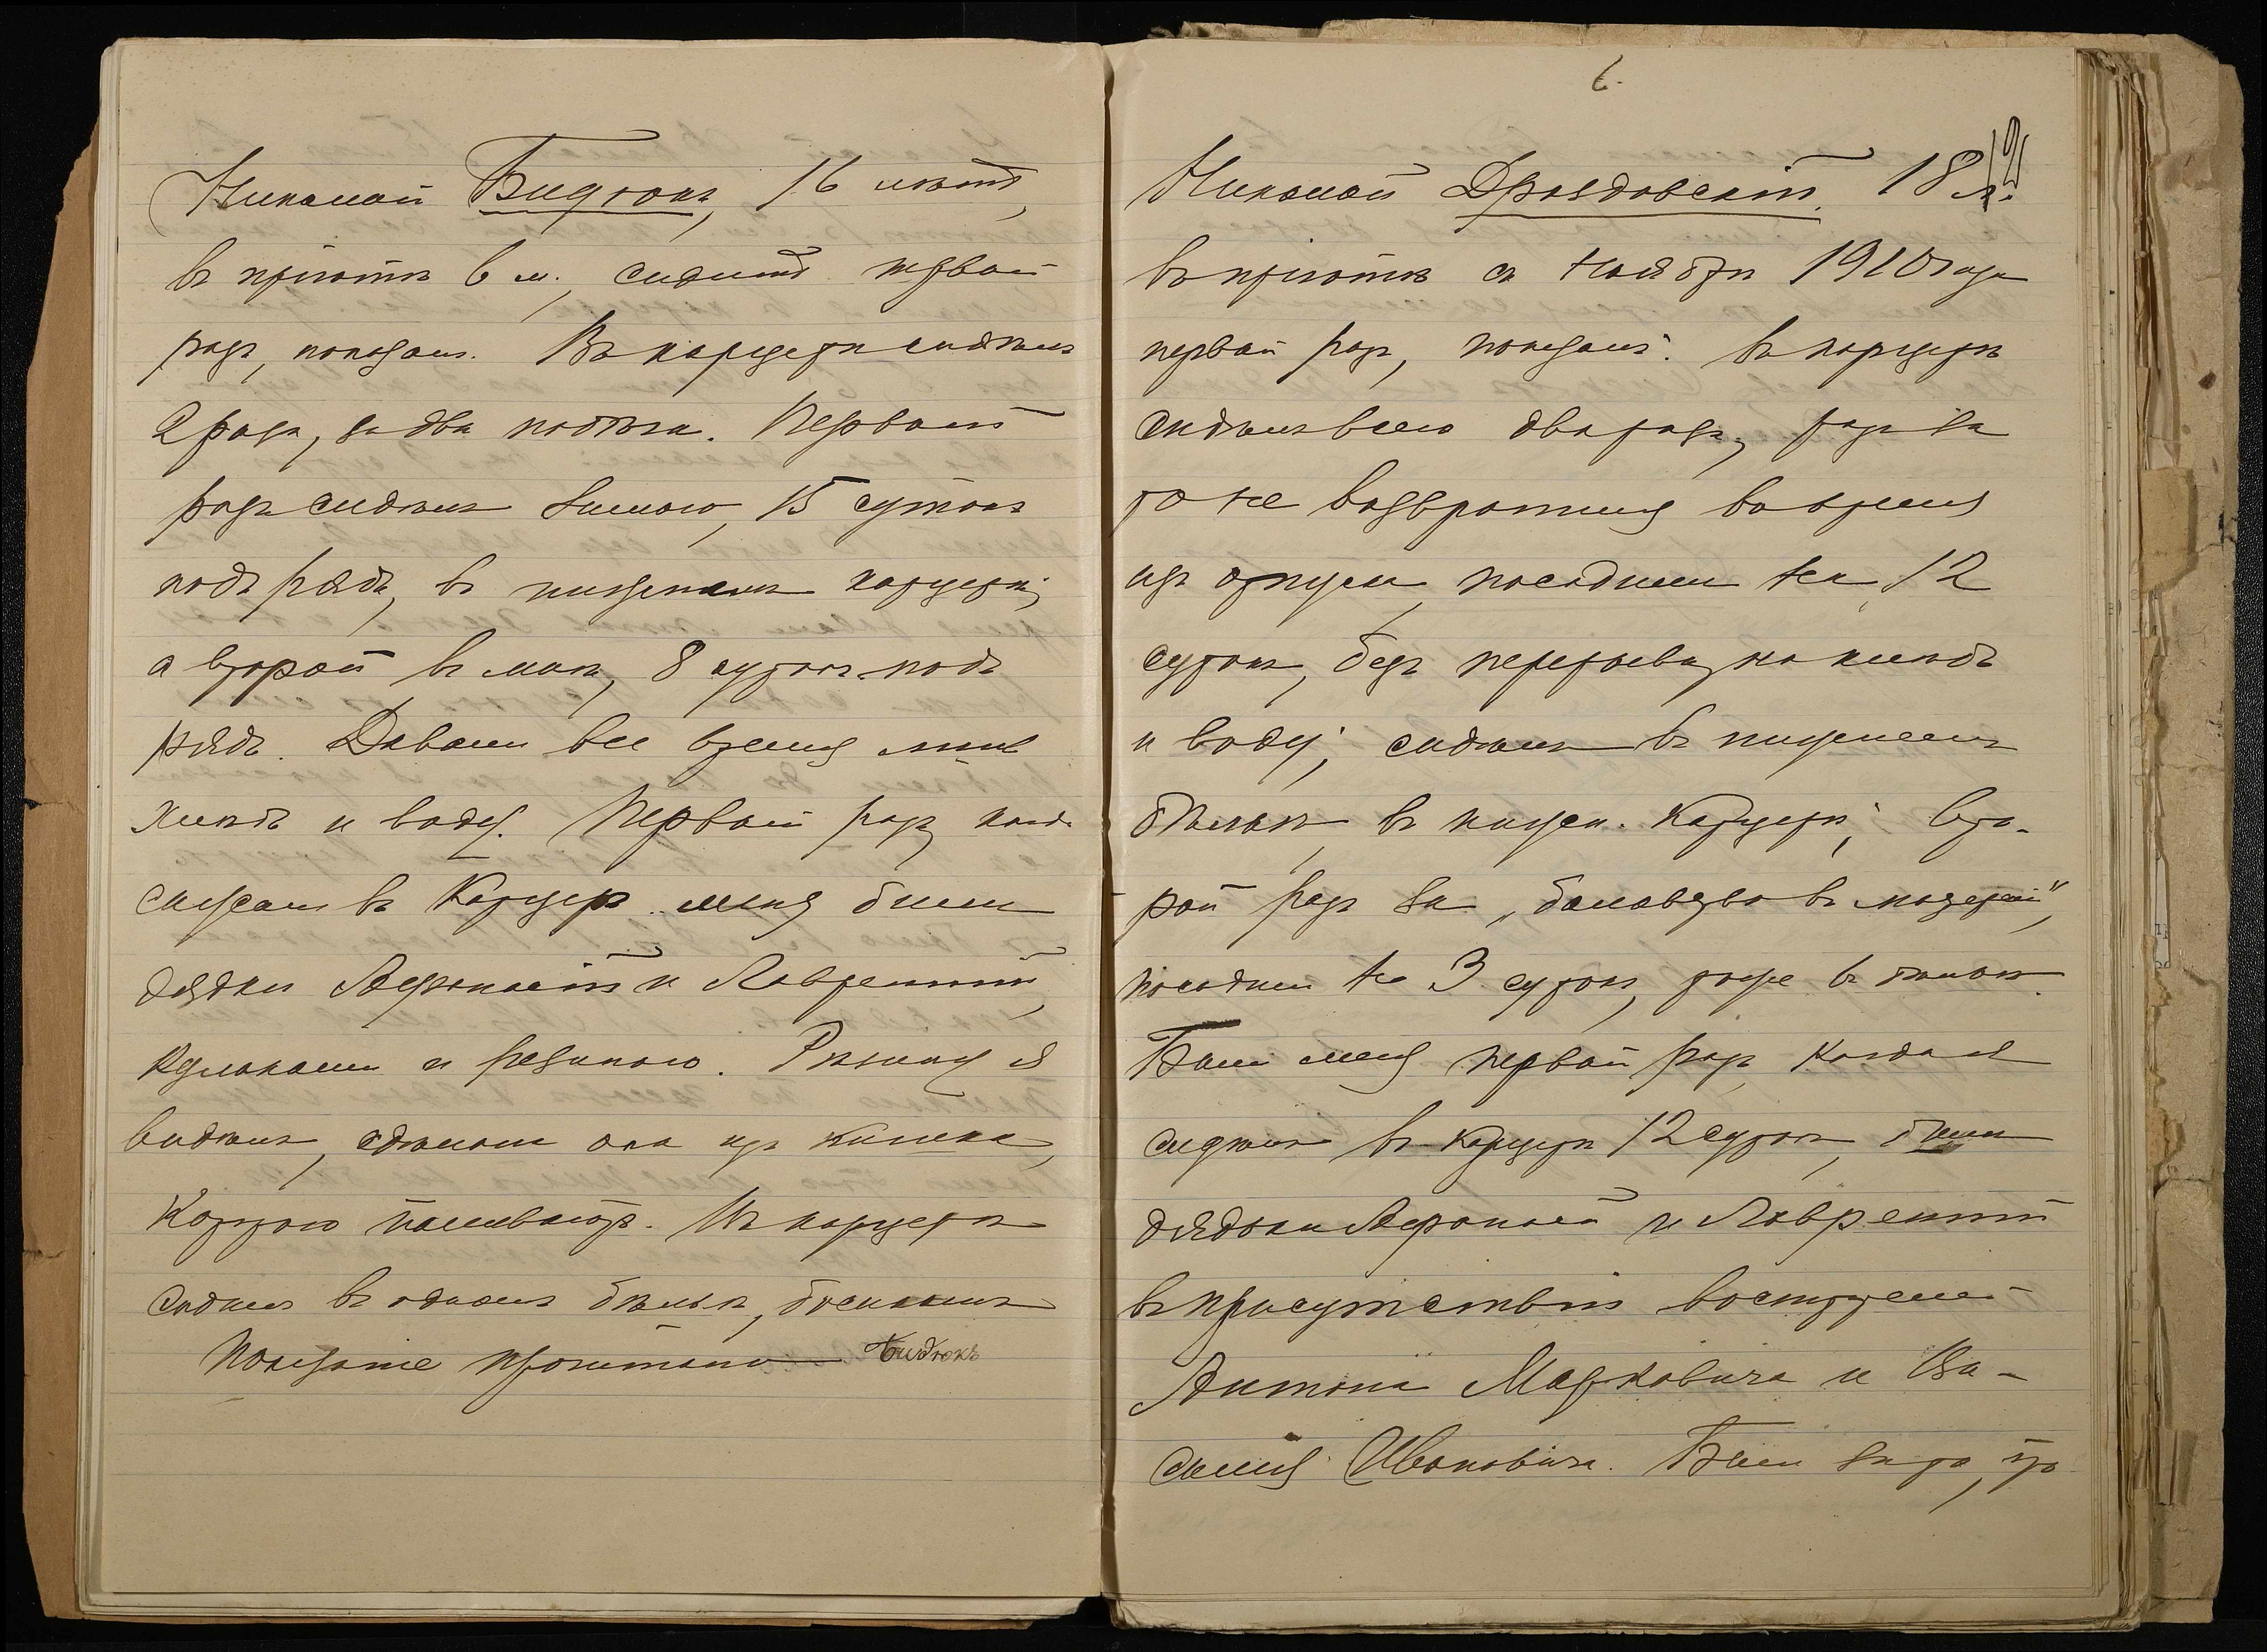 Николай Бидюкъ, 16 лѣтъ,
въ пріютѣ 6 м., сидитъ первый
разъ, показалъ. Въ карцерѣ сидѣлъ
2 раза, за два побѣга. Первый
разъ сидѣлъ зимою, 15 сутокъ
подъ рядъ, въ нижнемъ карцерѣ,
а второй въ маѣ, 8 сутокъ подъ
рядъ. Давали все время мнѣ
хлѣбъ и воду. Первый разъ, когда
сажали въ карцеръ меня били
дядьки Аѳанасій и Лаврентій,
кулаками и резиною. Резину я
видѣлъ, сдѣлана она изъ кишки,
которою поливаютъ. Въ карцерѣ
сидѣлъ въ одномъ бѣльѣ, босикомъ
Показаніе прочитано Бидюкъ
6.
12
Николай Дроздовскій. 18 л.
въ пріютѣ съ Ноября 1910 года
первый разъ, показалъ: въ карцерѣ
сидѣлъ всего два раза, разъ за
то не возвратился во время
изъ отпуска, посадили на 12
сутокъ, безъ перерыва, на хлѣбъ
и воду; сидѣлъ въ нижнемъ
бѣльѣ, въ нижн. карцерѣ; вто-
рой разъ за „баловство въ мастерской",
посадили на 3 сутокъ, тоже въ бѣльѣ.
Били меня первый разъ, когда я
сидѣлъ въ карцерѣ 12 сутокъ, били
дядьки Аѳанасій и Лаврентій
въ присутствіи воспитателей
Антона Марковича и Ва-
силія Ивановича. Били за то, что